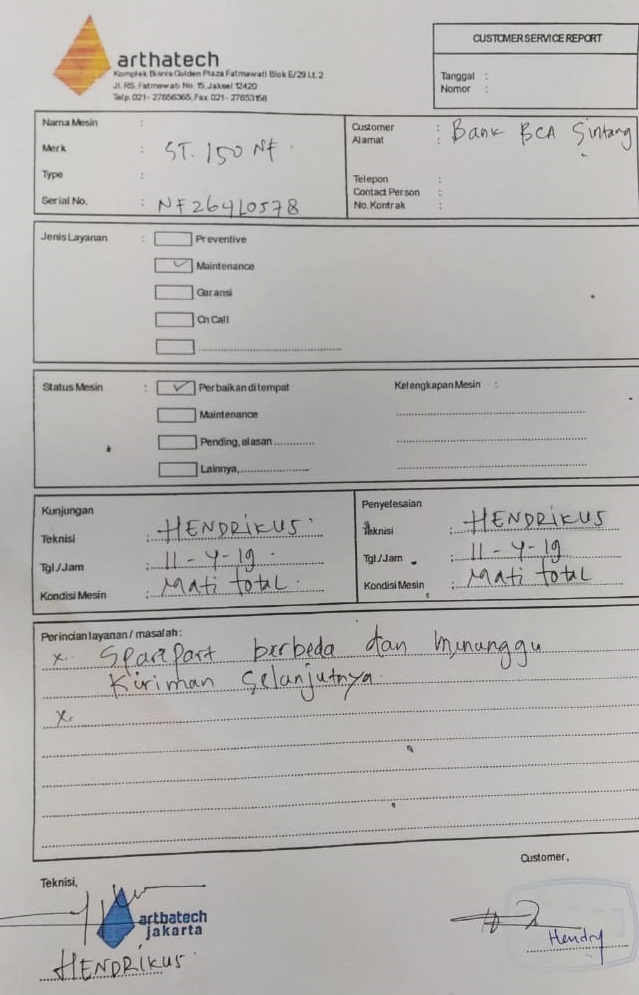 arthatech
Komplek Bisnis Golden Plaza Fatmawati Blok E/29 Lt. 2
Jl. RS. Fatmawati No. 15, Jaksel 12420
Telp. 021- 27656365, Fax. 021- 27653158
CUSTOMER SERVICE REPORT
Tanggal :
Nomor :
Nama Mesin :
Merk : ST. 150 NF.
Type :
Serial No. : NF26410578
Customer : Bank BCA Sintang
Alamat :
Telepon :
Contact Person :
No. Kontrak :
Jenis Layanan : Preventive
✓ Maintenance
Garansi
On Call
Status Mesin : ✓ Perbaikan ditempat
Maintenance
Pending, alasan ............
Lainnya, ....................
Kelengkapan Mesin :
Kunjungan
Teknisi : HENDRIKUS.
Tgl./Jam : 11-4-19.
Kondisi Mesin : Mati total.
Penyelesaian
Teknisi : HENDRIKUS
Tgl./Jam : 11-4-19
Kondisi Mesin : Mati total
Perincian layanan / masalah :
x. Sparepart berbeda dan menunggu
Kiriman Selanjutnya.
x.
Customer,
Teknisi,
arthatech
jakarta
HENDRIKUS
Hendry